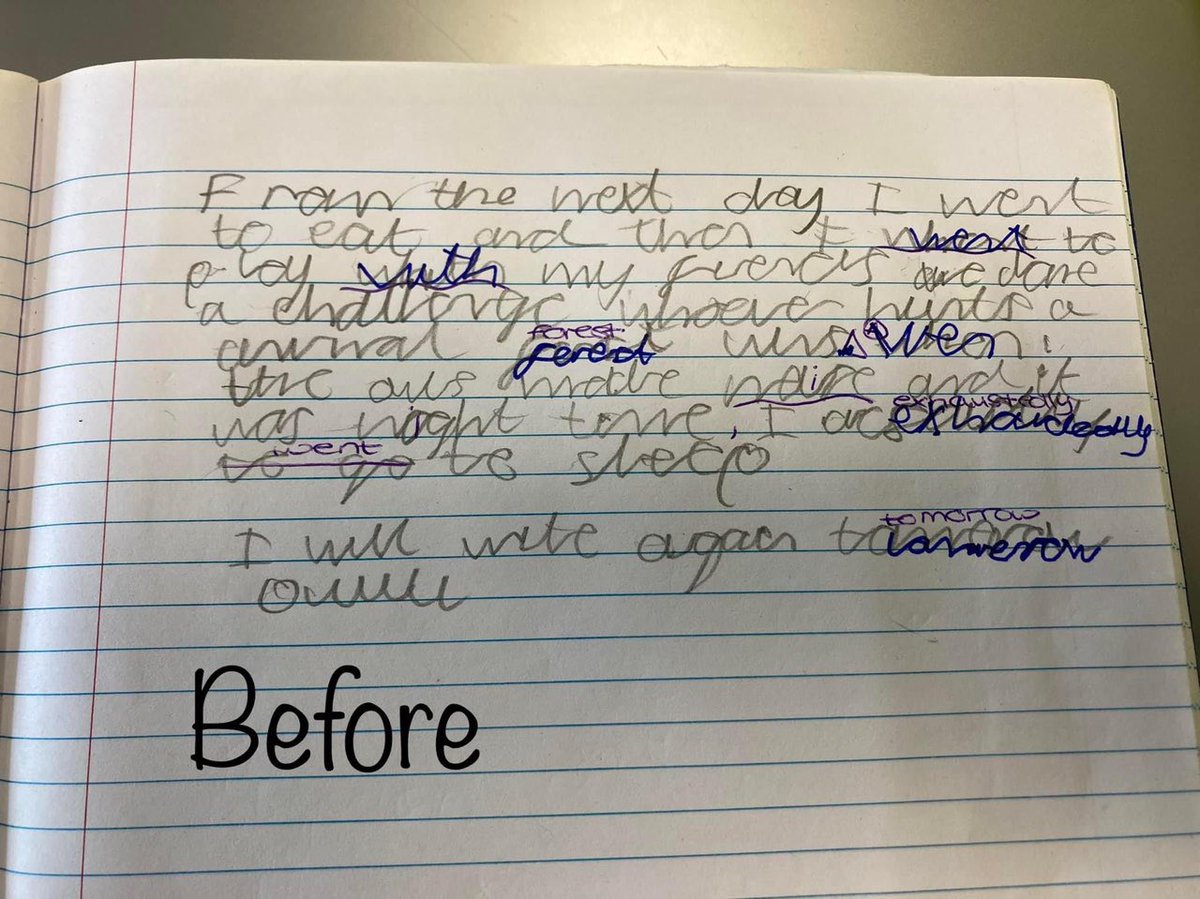 From the next day I went
to eat and then I went to
play with my friends we done
a challenge whoever hunts a
animal forest ferest wins When
the owls made noise and it
was night time, I exhaustedly exhaustedly
went to go to sleep
I will write again tomorrow tomorrow
Ollllll
Before